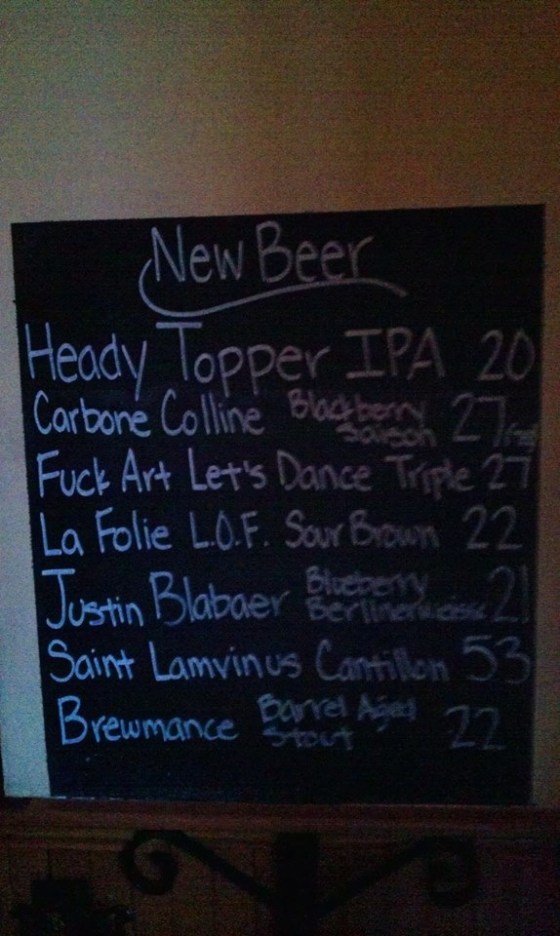 New Beer
Heady Topper IPA 20
Carbone Colline Blackberry Saison 27
Fuck Art Let's Dance Triple 27
La Folie L.O.F. Sour Brown 22
Justin Blabaer Blueberry Berlinerweisse 21
Saint Lamvinus Cantillon 53
Brewmance Barrel Aged Stout 22